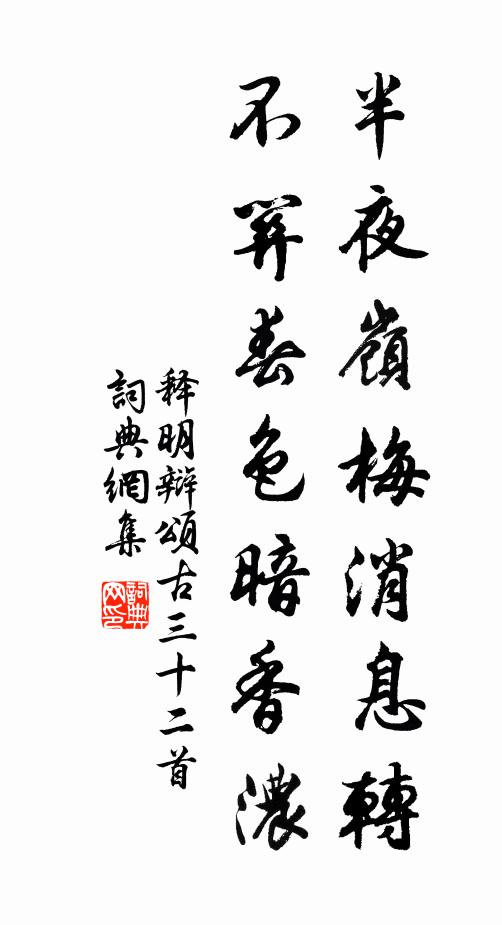 半夜嶺梅消息轉
不關春色暗香濃
释明辯頌古三十二首
詞典網集
詞典网印